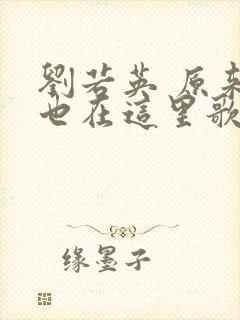 劉若英 原来
也在這里歌
缘墨子